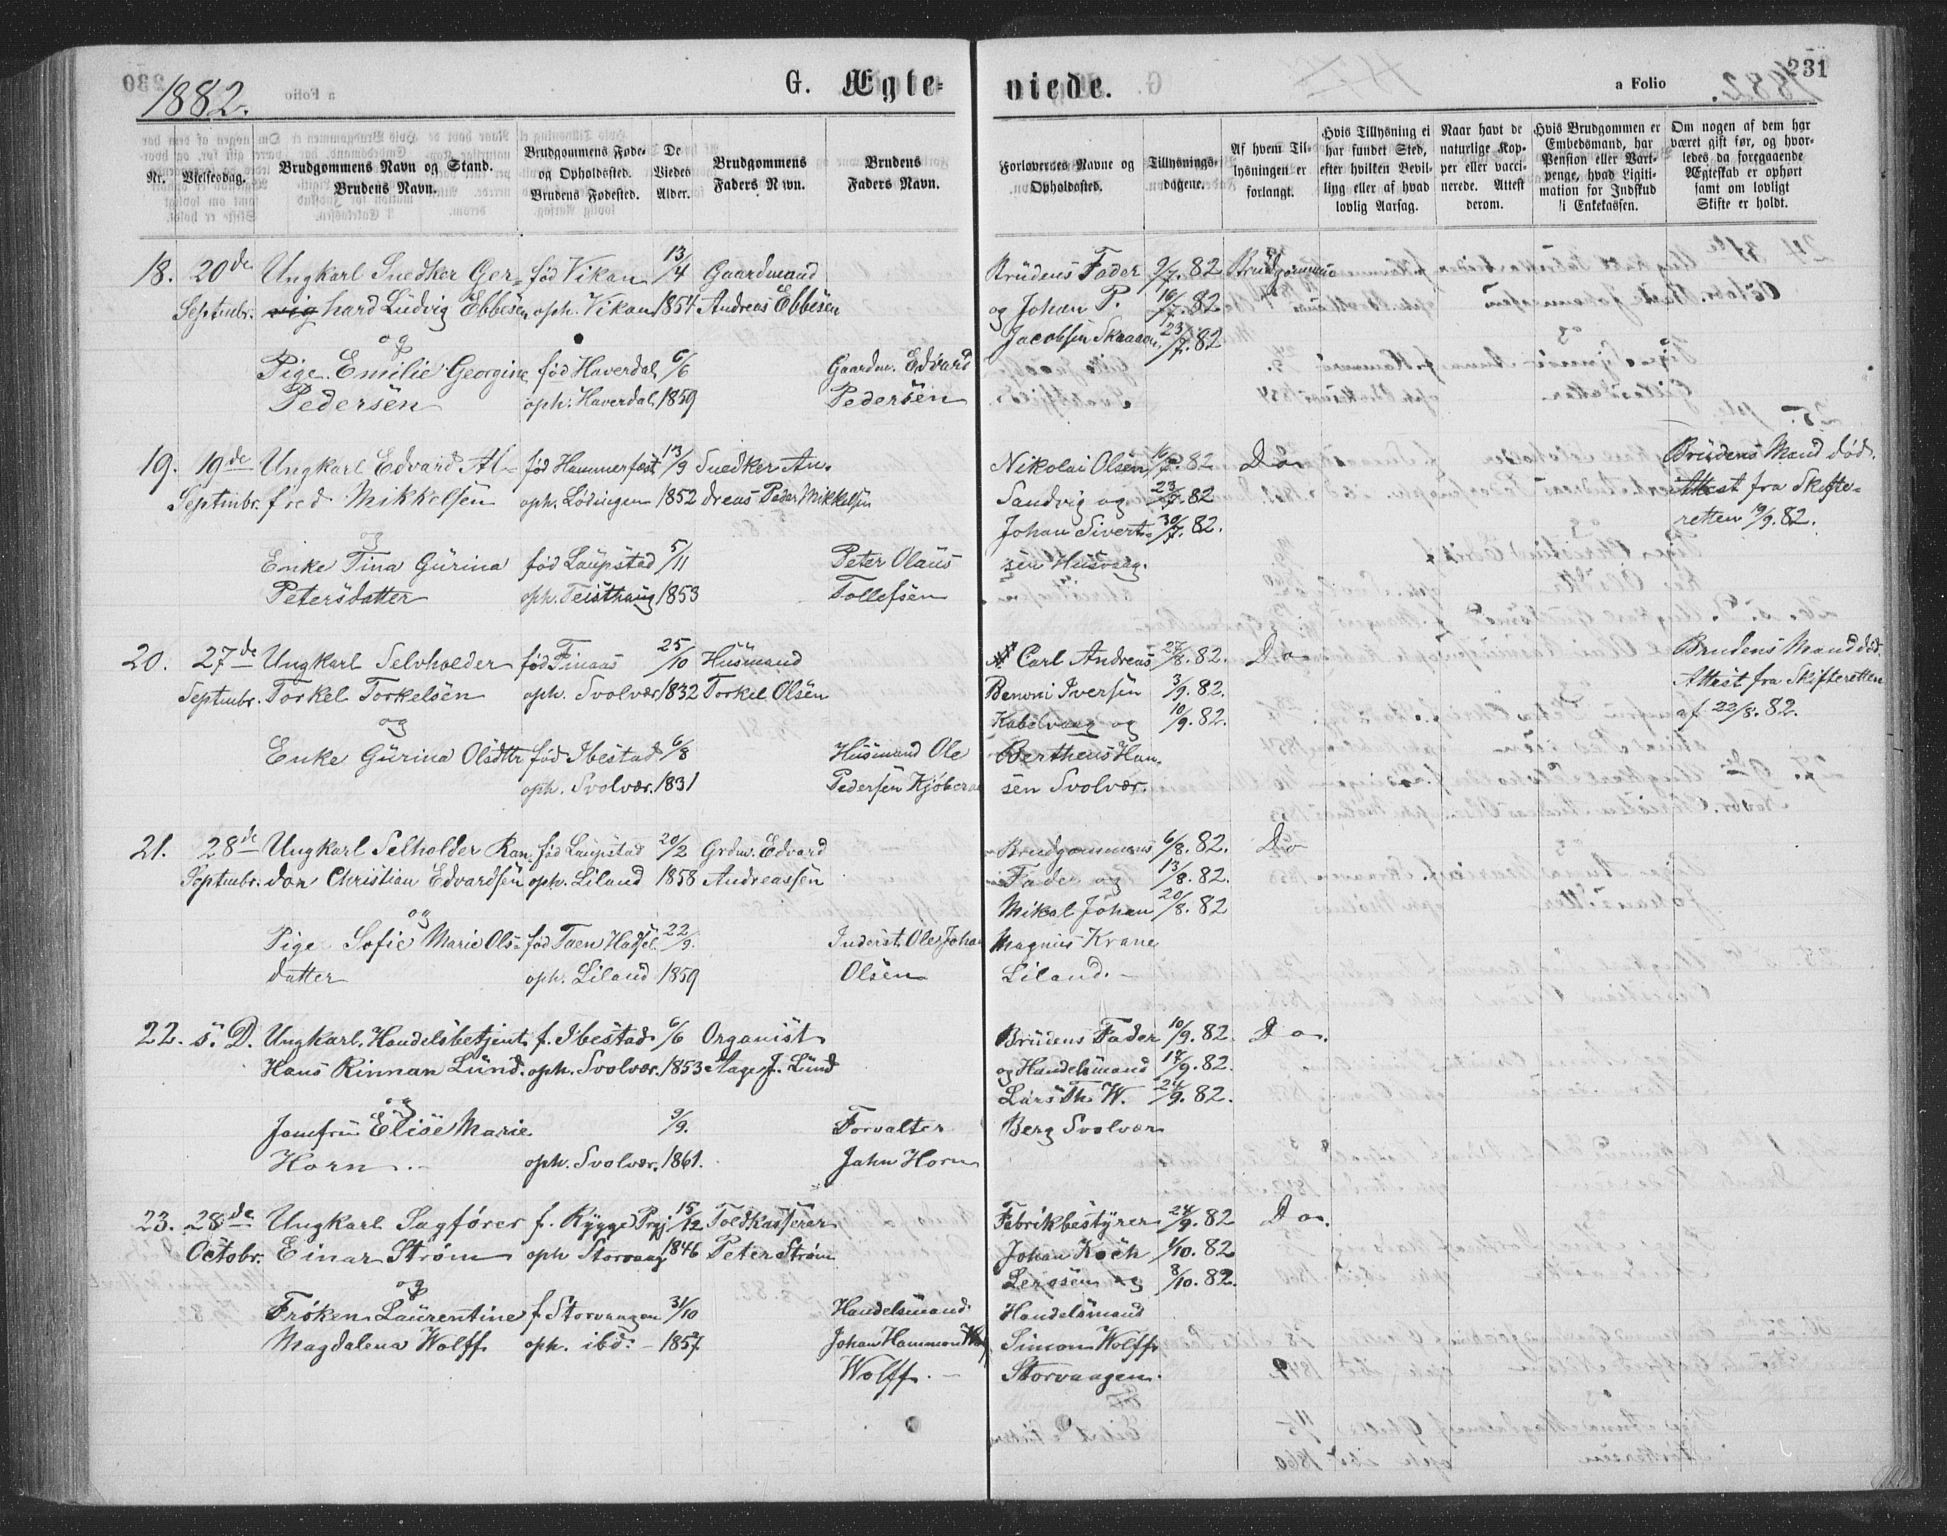 1882.
G. Ægte-
Nr.
Vielsesdag.
Brudgommens Navn og Stand.
Brudens Navn.
Brudgommens Føde-
og Opholdssted.
Brudens Fødested.
De
Viedes
Alder.
Brudgommens
Faders Navn.
Brudens
Faders Navn.
18. 20de Ungkarl Snedker Ger- fød Vikan 13/4 Gaardmand
Septmbr. hard Ludvig Ebbesen oph. Vikan 1854 Andreas Ebbesen
og
Pige Emilie Georgine fød Haverdal 6/6 Gaardm. Edvard
Pedersen oph. Haverdal 1859 Pedersen
19. 19de Ungkarl Edvard Al- fød Hammerfest 13/9 Snedker An-
Septmbr. fred Mikkelsen oph. Lødingen 1852 dreas Peder Mikkelsen
og
Enke Tina Gurina fød Laupstad 5/11 Peter Olaus
Petersdatter oph. Teisthaug 1853 Tollefsen
20. 27de Ungkarl Selvholder fød Finaas 25/10 Husmand
Septmbr. Torkel Torkelsen oph. Svolvær 1832 Torkel Olsen
og
Enke Gurina Olsdttr fød Ibestad 6/8 Husmand Ole
oph. Svolvær. 1831 Pedersen
21. 28de Ungkarl Selholder Ran- fød Laupstad 20/2 Grdm. Edvard
Septmbr. don Christian Edvardsen oph. Liland 1858 Andreassen
og
Pige Sofie Marie Ols- fød Taen Hassel 22/9. Inderst. Ole Johan
datter oph. Liland 1859 Olsen
22. s. D. Ungkarl, Handelsbetjent f. Ibestad 6/6 Organist
Hans Rinnan Lund. oph. Svolvær. 1853 Aage J. Lund
og
Jomfru Elise Marie 9/9. Forvalter
Horn. oph. Svolvær. 1861. Jahn Horn
23. 28de Ungkarl Sagfører f. Rygge Prgj. 15/12 Toldkasserer
Octobr. Einar Strøm oph Storvaag 1846 Peter Strøm
og
Frøken Laurentine f. Storvaagen 31/10 Handelsmand
Magdalena Wolff oph. ibd: - 1857 Johan Hammond
Wolff. -
viede.
a Folio
1882.
231
Forlovernes Navne og
Opholdssted.
Tillysnings-
dagene.
Af hvem Til-
lysningen er
forlangt.
Hvis Tillysning ei
har fundet Sted,
efter hvilken Bevil-
ling eller af hvad
lovlig Aarsag.
Naar havt de
naturlige Kop-
per eller vacci-
nerede. Attest
derom.
Hvis Brudgommen er
Embedsmand, har
Pension eller Vart-
penge, hvad Legiti-
mation for Indskud
i Enkekassen.
Om nogen af dem har
været gift før, og hvor-
ledes da foregaaende
Ægteskab er ophørt
samt om lovligt
Skifte er holdt.
Brudens Fader 9/7. 82 Brudgommen
og Johan P. 16/7. 82
Jacobsen 23/7. 82
Nikolai Olsen 16/7. 82 Do Brudens Mand død.
Sandvig og 23/7. 82 Attest fra Skifte-
Johan Sivert- 30/7. 82. retten 19/9. 82.
sen Husvaag.
Carl Andreas 27/8. 82. Do Brudens Mand død.
Benoni Iversen 3/9. 82. Attest fra Skifteretten
Kabelvaag og 10/9. 82. af 22/8. 82.
Bertheus Han-
sen Svolvær.
Brudgommens 6/8. 82. Do
Fader og 13/8. 82.
Mikal Johan 20/8. 82
Magnus Krane
Liland. -
Brudens Fader 10/9. 82. Do.
og Handelsmand 17/9. 82.
Lars Th. W. 24/9. 82.
Berg Svolvær
Fabrikbestyrer 24/9. 82 Do.
Johan Koch 1/10. 82
og 8/10. 82.
Handelsmand
Simon Wolff
Storvaagen.